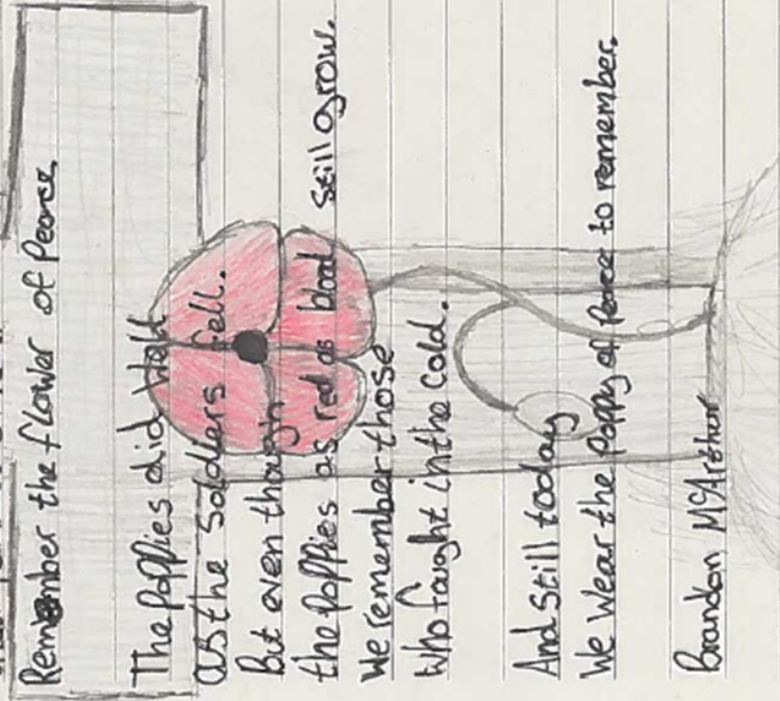 Remember the flower of Pearce
The poppies did Welt
as the Soldiers fell.
But even though
the poppies as red as blood still grow.
We remember those
who fought in the Cold.
And Still today
We Wear the Poppy of Pearce to remember.
Brandon McArthur